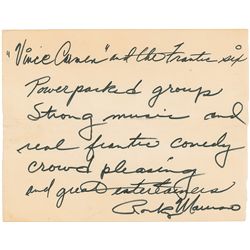 "Vince Carmen" and the Frantic six
Powerpacked group
Strong music and
real frantic comedy
crowd pleasing
and great entertainers
Rocky